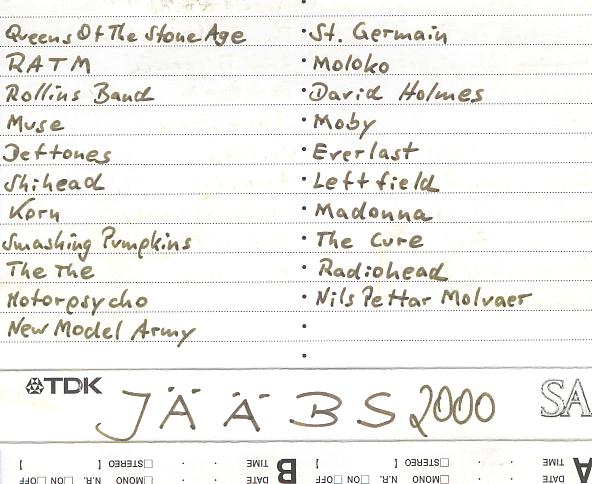 Queens Of The Stone Age
RATM
Rollins Band
Muse
Deftones
Shihead
Korn
Smashing Pumpkins
The The
Motorpsycho
New Model Army
· St. Germain
· Moloko
· David Holmes
· Moby
· Everlast
· Leftfield
· Madonna
· The Cure
· Radiohead
· Nils Pettar Molvaer
TDK JÄÄBS 2000 SA
A DATE TIME N.R. □ON □OFF □MONO □STEREO [ ]
B DATE TIME N.R. □ON □OFF □MONO □STEREO [ ]